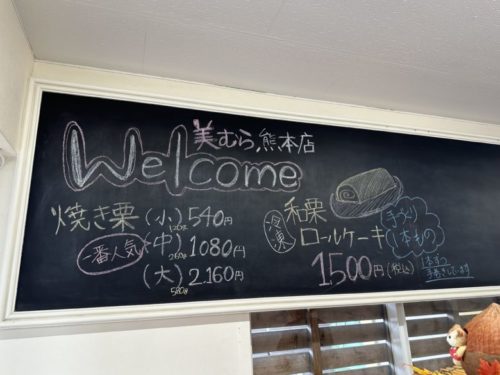 Welcome
美むら熊本店
焼き栗 (小) 540円
120g
一番人気 (中) 1080円
260g
(大) 2.160円
520g
冷凍
和栗
ロールケーキ
1500円(税込)
手づくり
1本もの
1本ずつ
手巻きしています